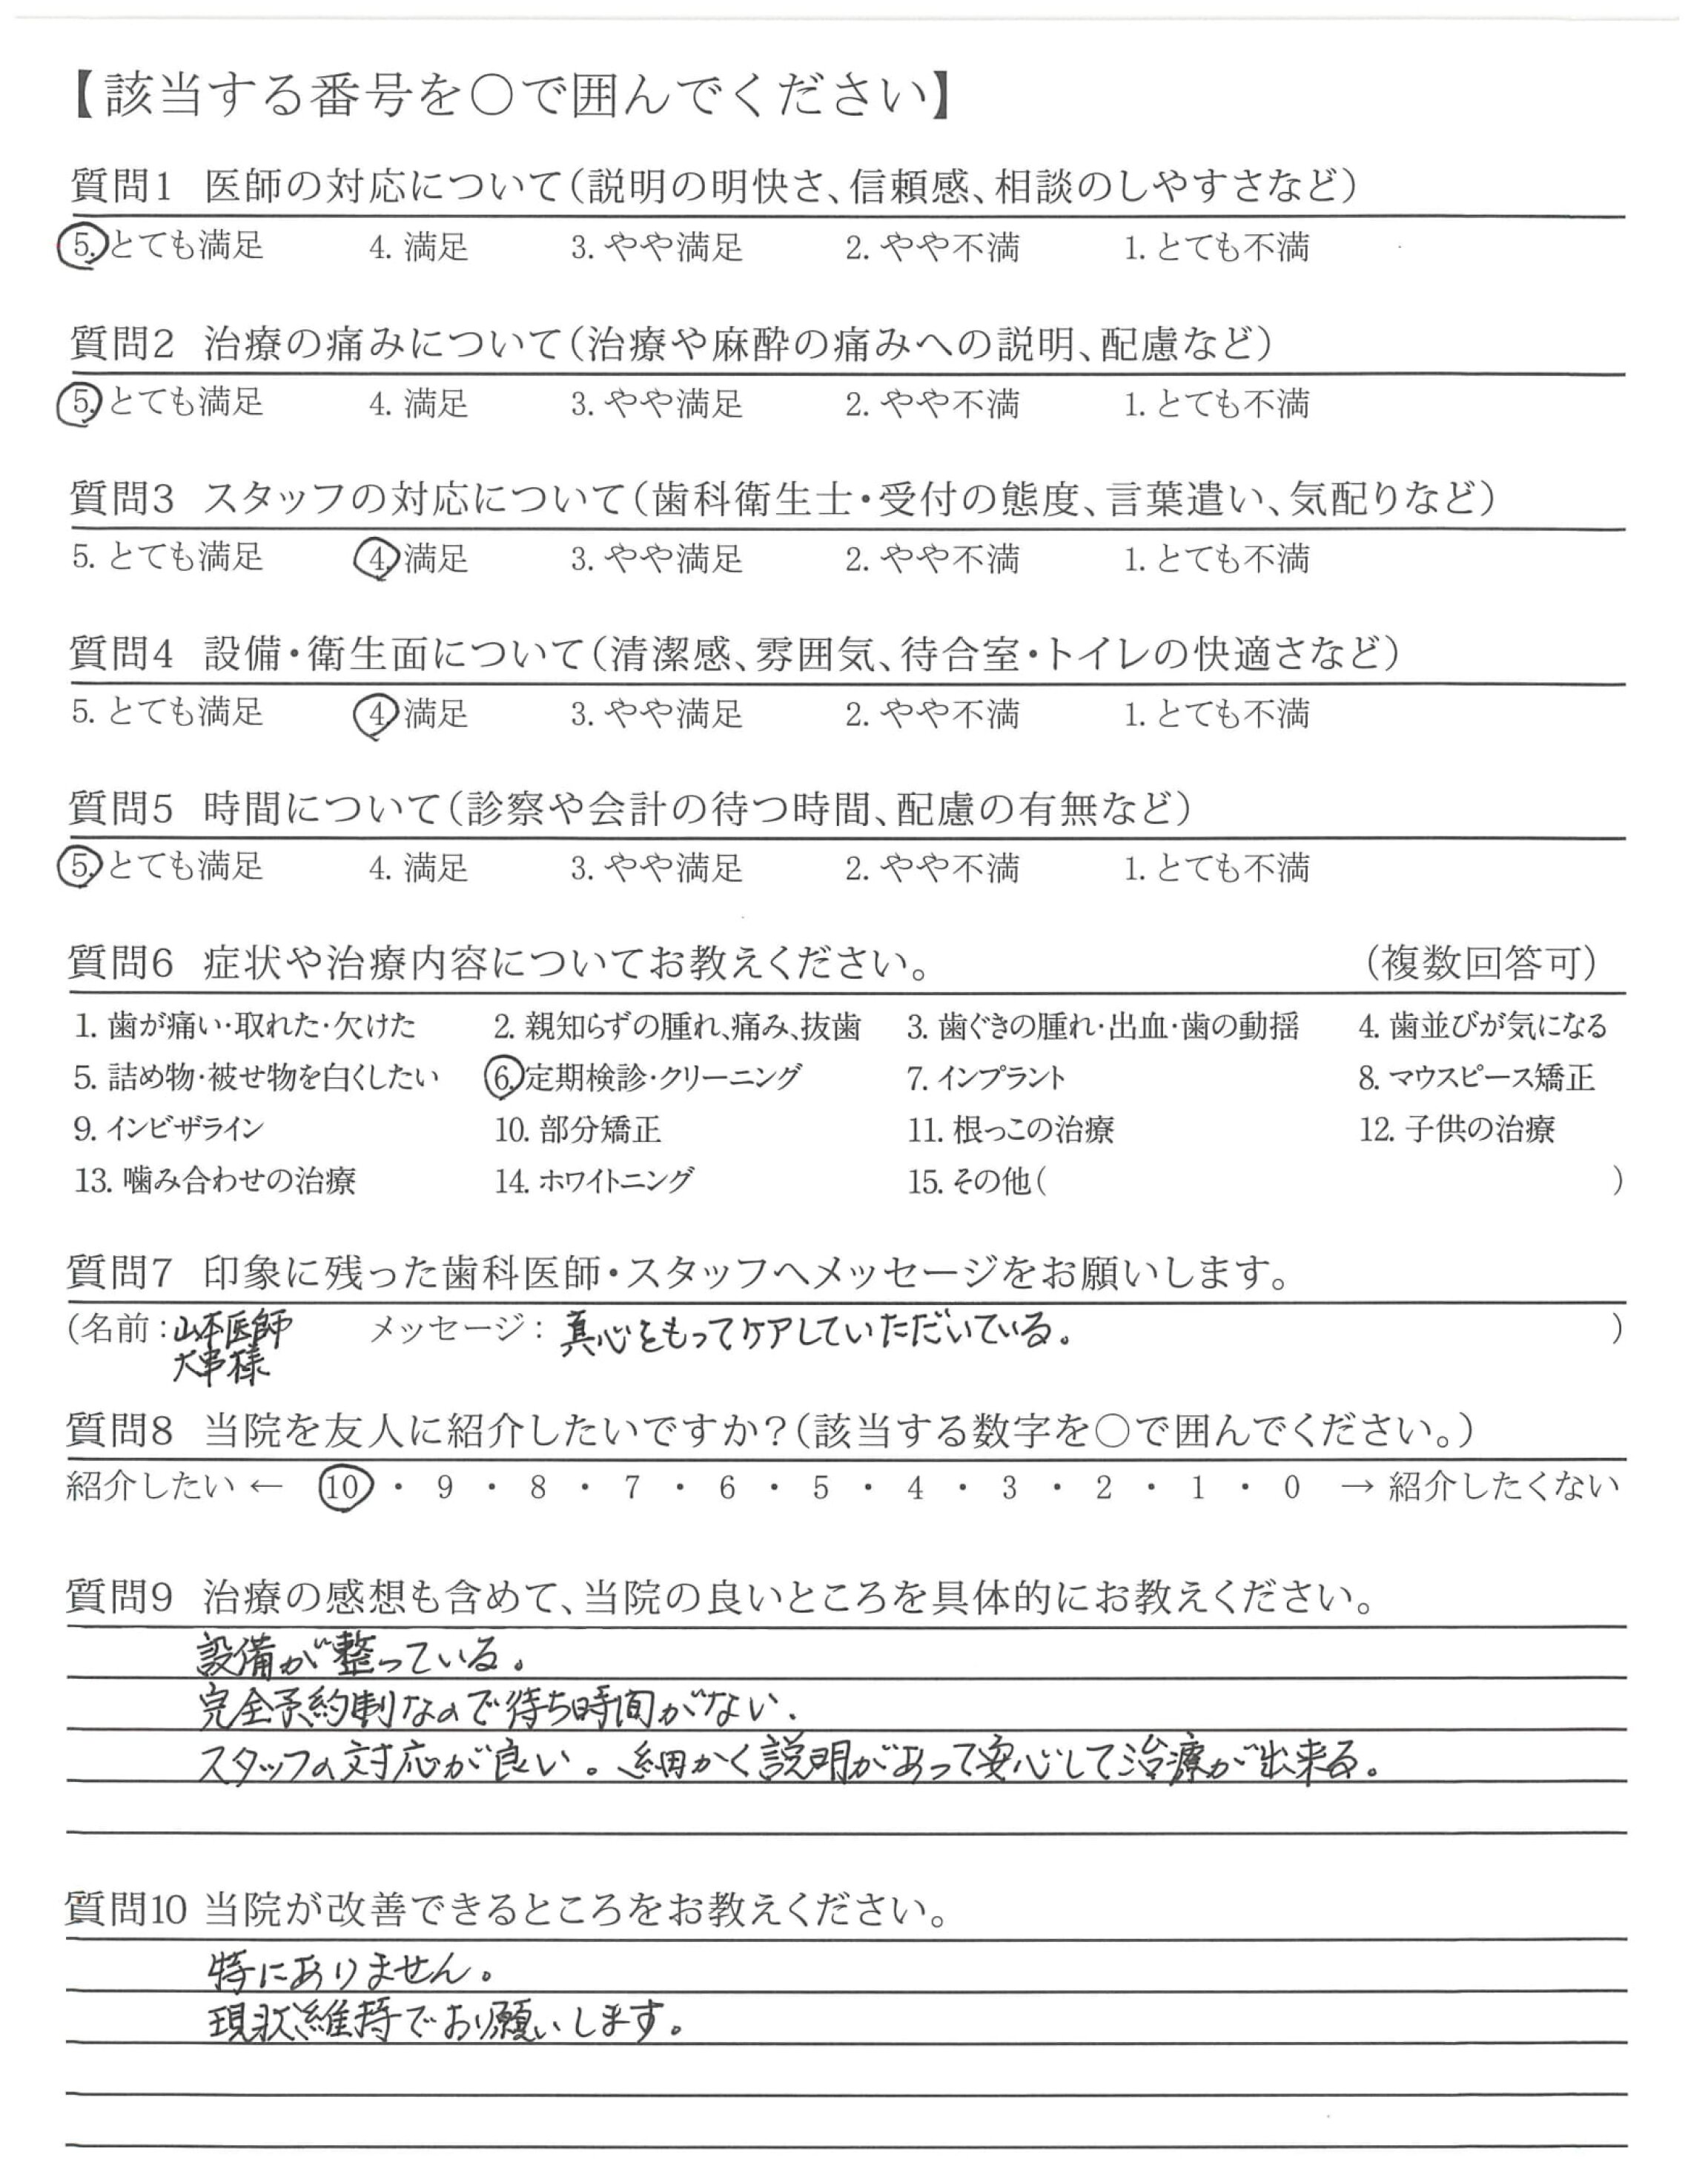 【該当する番号を〇で囲んでください】
質問1 医師の対応について(説明の明快さ、信頼感、相談のしやすさなど)
5. とても満足 4. 満足 3. やや満足 2. やや不満 1. とても不満
質問2 治療の痛みについて(治療や麻酔の痛みへの説明、配慮など)
5. とても満足 4. 満足 3. やや満足 2. やや不満 1. とても不満
質問3 スタッフの対応について(歯科衛生士・受付の態度、言葉遣い、気配りなど)
5. とても満足 4. 満足 3. やや満足 2. やや不満 1. とても不満
質問4 設備・衛生面について(清潔感、雰囲気、待合室・トイレの快適さなど)
5. とても満足 4. 満足 3. やや満足 2. やや不満 1. とても不満
質問5 時間について(診察や会計の待つ時間、配慮の有無など)
5. とても満足 4. 満足 3. やや満足 2. やや不満 1. とても不満
質問6 症状や治療内容についてお教えください。 (複数回答可)
1. 歯が痛い・取れた・欠けた 2. 親知らずの腫れ、痛み、抜歯 3. 歯ぐきの腫れ・出血・歯の動揺 4. 歯並びが気になる
5. 詰め物・被せ物を白くしたい 6. 定期検診・クリーニング 7. インプラント 8. マウスピース矯正
9. インビザライン 10. 部分矯正 11. 根っこの治療 12. 子供の治療
13. 噛み合わせの治療 14. ホワイトニング 15. その他( )
質問7 印象に残った歯科医師・スタッフへメッセージをお願いします。
(名前：山本医師 メッセージ：真心をもってケアしていただいている。 )
大串様
質問8 当院を友人に紹介したいですか？(該当する数字を〇で囲んでください。)
紹介したい ← 10 ・ 9 ・ 8 ・ 7 ・ 6 ・ 5 ・ 4 ・ 3 ・ 2 ・ 1 ・ 0 → 紹介したくない
質問9 治療の感想も含めて、当院の良いところを具体的にお教えください。
設備が整っている。
完全予約制なので待ち時間がない.
スタッフの対応が良い。細かく説明があって安心して治療が出来る。
質問10 当院が改善できるところをお教えください。
特にありません。
現状維持でお願いします。